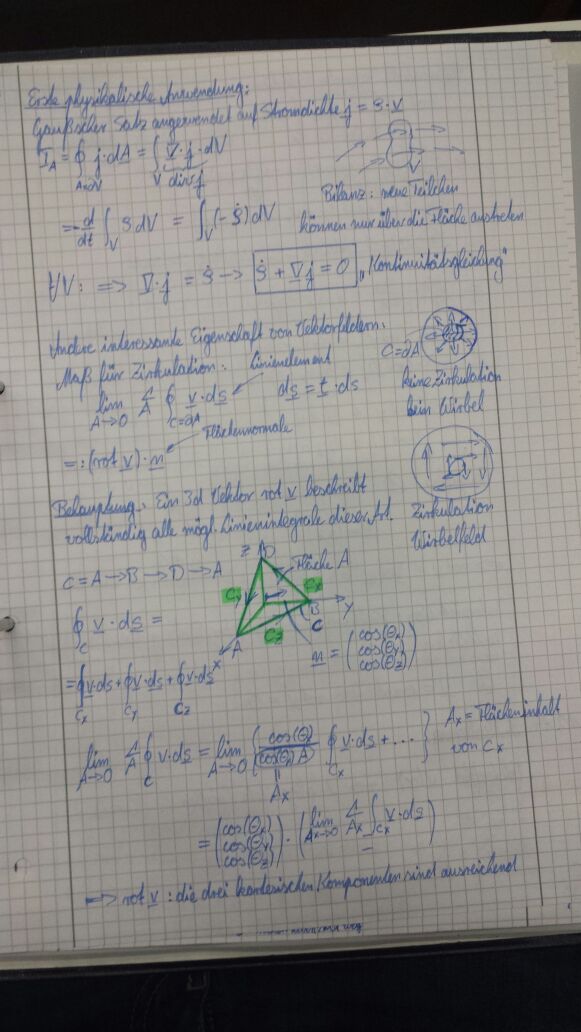 Erste physikalische Anwendung:
Gaußscher Satz angewendet auf Stromdichte j = ϱ·v
I_A = ∮_{A=∂V} j·dA = ∫_V ∇·j·dV
div j
V
Bilanz: neue Teilchen
können nur über die Fläche austreten
= -d/dt ∫_V ϱ dV = ∫_V (-ϱ̇) dV
∀V: ⟹ ∇·j = ϱ̇ → ϱ̇ + ∇j = 0 „Kontinuitätsgleichung"
Andere interessante Eigenschaft von Vektorfeldern:
Maß für Zirkulation:
Linienelement
lim_{A→0} 1/A ∮_{C=∂A} v·ds
ds = t·ds
C=∂A
keine Zirkulation
kein Wirbel
=: (rot v)·n
Flächennormale
Behauptung: Ein 3d Vektor rot v beschreibt
vollständig alle mögl. Linienintegrale dieser Art.
Zirkulation
Wirbelfeld
C = A → B → D → A
z D Fläche A
C_y C_x
B y
C
C_z
A
x
∮_C v·ds =
n = (cos(Θ_x) cos(Θ_y) cos(Θ_z))
= ∮_{C_x} v·ds + ∮_{C_y} v·ds + ∮_{C_z} v·ds
lim_{A→0} 1/A ∮_C v·ds = lim_{A→0} { cos(Θ_x)/(cos(Θ_x) A) ∮_{C_x} v·ds + ... }
A_x = Flächeninhalt
von C_x
= A_x
= (cos(Θ_x) cos(Θ_y) cos(Θ_z)) · (lim_{A_x→0} 1/A_x ∫_{C_x} v·ds)
⟹ rot v : die drei kartesischen Komponenten sind ausreichend